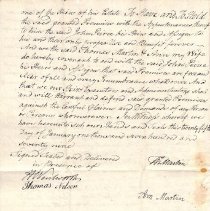 one of the Heirs of his Estate To Have and To Hold
the said granted Premises with the Appurtenances thereof
to him the said John Peirce his Heirs and Assigns to
his and their own proper Use and Benefit forever
And we the said Thomas Martin & Ann my Wife
do hereby covenant to and with the said John Peirce
his Heirs and Assigns that said Premises are free and
clear of all and every Incumbrance whatsoever And
that we our Heirs Executors and Administrators shall
and will Warrant and defend said granted Premises
against the lawful Claims and Demands of any Person
or Persons whomsoever In Witness whereof we
have hereunto set our Hands and Seals this
day of January one thousand seven hundred and
seventy nine
Signed Sealed and Delivered
in Presence of
Tho Martin
H Wentworth
Thomas
Ann Martin